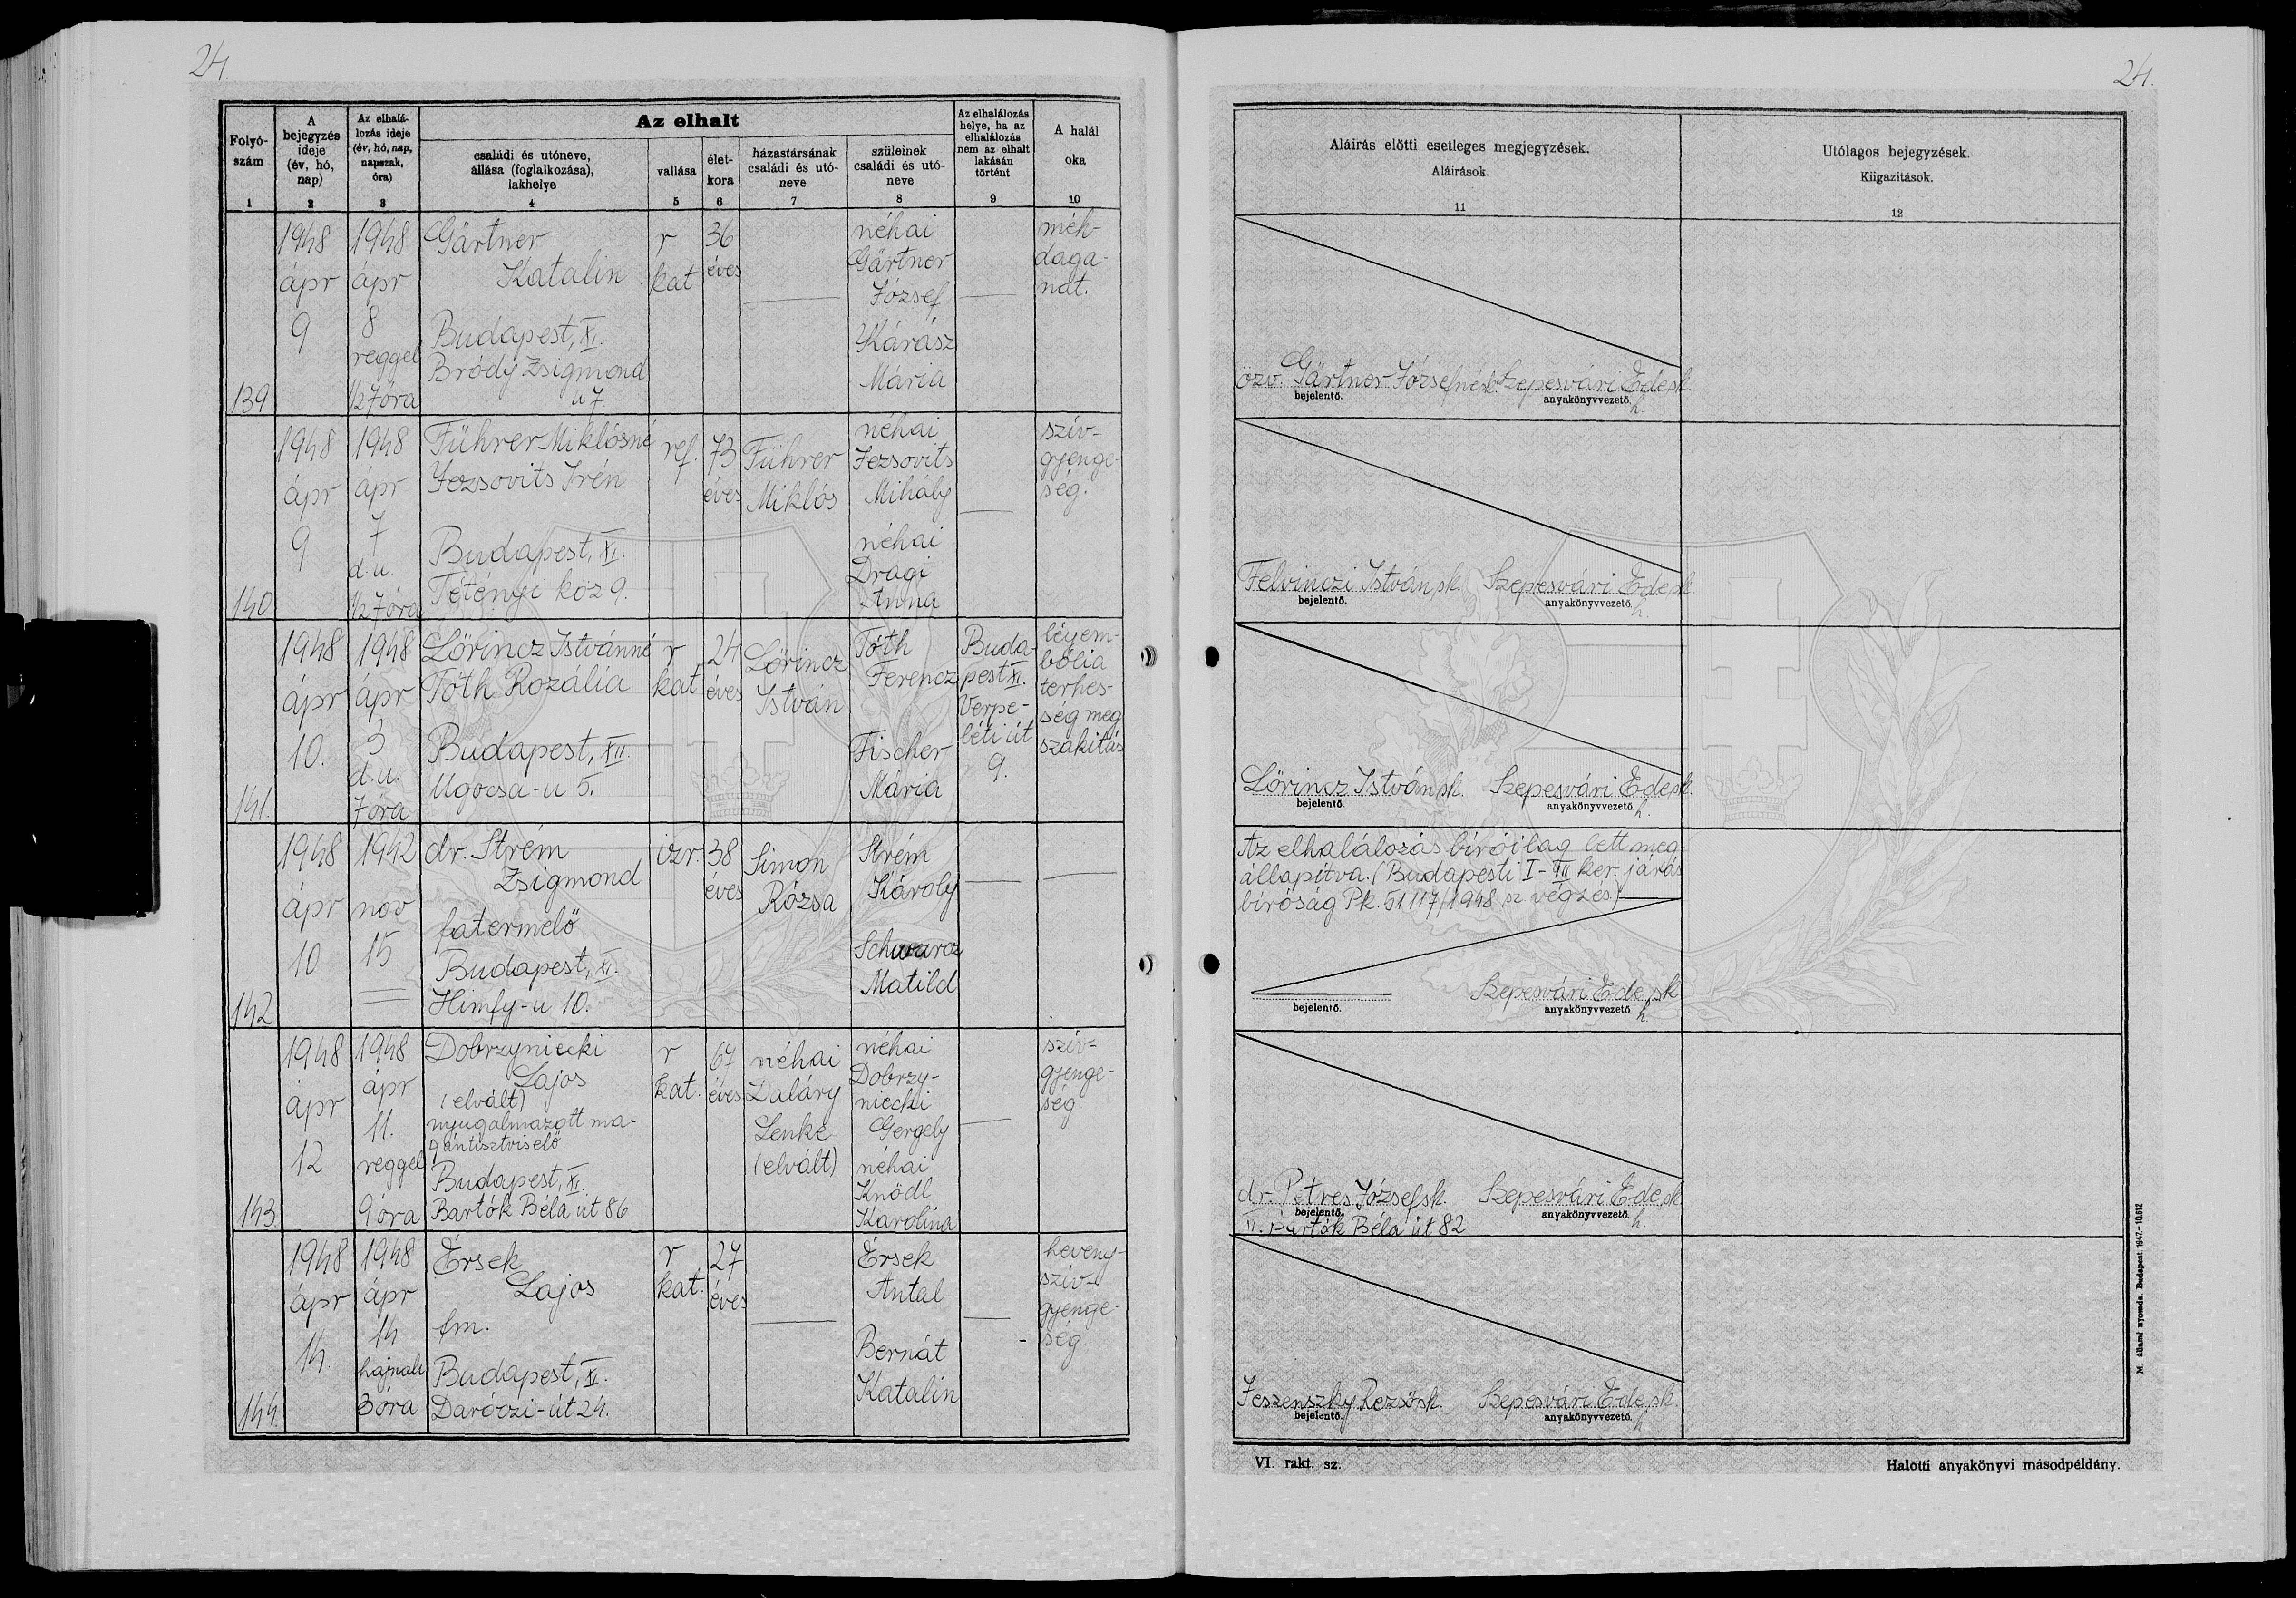 24.
Folyó-
szám
1
A
bejegyzés
ideje
(év, hó,
nap)
2
Az elhalá-
lozás ideje
(év, hó, nap,
napszak,
óra)
3
Az elhalt
családi és utóneve,
állása (foglalkozása),
lakhelye
4
vallása
5
élet-
kora
6
házastársának
családi és utó-
neve
7
szüleinek
családi és utó-
neve
8
Az elhalálozás
helye, ha az
elhalálozás
nem az elhalt
lakásán
történt
9
A halál
oka
10
139
1948
ápr
9
1948
ápr
8
reggel
1/2 7 óra
Gärtner
Katalin
Budapest, XI.
Bródy Zsigmond
u 7
r
kat
36
éves
néhai
Gärtner
József
Kárász
Mária
méh-
daga-
nat.
140
1948
ápr
9
1948
ápr
7
d.u.
1/2 7 óra
Führer Miklósné
Jezsovits Irén
Budapest, XI.
Tétényi köz 9.
ref.
73
éves
Führer
Miklós
néhai
Jezsovits
Mihály
néhai
Dragi
Anna
szív-
gyenge-
ség.
141.
1948
ápr
10.
1948
ápr
3
d.u.
7 óra
Lőrincz Istvánné
Tóth Rozália
Budapest, XII.
Ugocsa-u 5.
r
kat
24
éves
Lőrincz
István
Tóth
Ferencz
Fischer
Mária
Buda-
pest XI.
Verpe-
léti út
9.
légem-
bólia
terhes-
ség meg
szakítás
142
1948
ápr
10
1942
nov
15
dr. Strém
Zsigmond
fatermelő
Budapest, XI.
Himfy-u 10.
izr.
38
éves
Simon
Rózsa
Strém
Károly
Schwarcz
Matild
143.
1948
ápr
12
1948
ápr
11.
reggel
9 óra
Dobrzyniecki
Lajos
(elvált)
nyugalmazott ma-
gántisztviselő
Budapest, XI.
Bartók Béla út 86
r
kat.
67
éves
néhai
Daláry
Lenke
(elvált)
néhai
Dobrzy-
niecki
Gergely
néhai
Knödl
Karolina
szív-
gyenge-
ség
144.
1948
ápr
14.
1948
ápr
14
hajnali
3 óra
Érsek
Lajos
fm.
Budapest, XI.
Daróczi-út 24.
r
kat.
27
éves
Érsek
Antal
Bernát
Katalin
heveny-
szív-
gyenge-
ség.
24.
Aláírás előtti esetleges megjegyzések.
Aláírások.
11
Utólagos bejegyzések.
Kiigazítások.
12
özv. Gärtner Józsefné sk. Szepesvári Ede sk.
bejelentő. anyakönyvvezető. h.
Felvinczi István sk. Szepesvári Ede sk.
bejelentő. anyakönyvvezető. h.
Lőrincz István sk. Szepesvári Ede sk.
bejelentő. anyakönyvvezető. h.
Az elhalálozás bíróilag lett meg-
állapítva. (Budapesti I-III ker. járás
bíróság Pk. 51117/1948 sz végzés)
Szepesvári Ede sk
bejelentő. anyakönyvvezető. h.
dr. Petres József sk. Szepesvári Ede sk
bejelentő. anyakönyvvezető. h.
Bartók Béla út 82
Jeszenszky Rezső sk. Szepesvári Ede sk.
bejelentő. anyakönyvvezető. h
VI. rakt. sz.
Halotti anyakönyvi másodpéldány.
M. állami nyomda. Budapest. 1947.-10.512